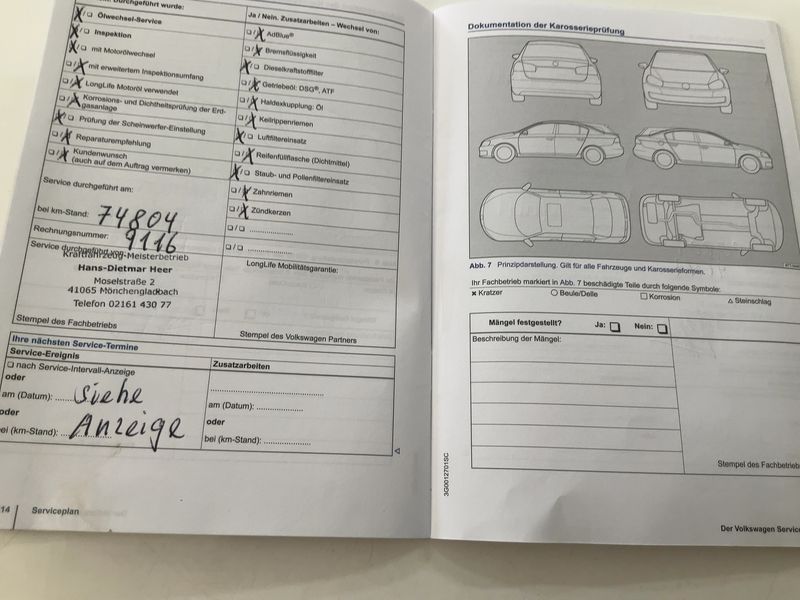 durchgeführt wurde:
Ölwechsel-Service
Inspektion
mit Motorölwechsel
mit erweitertem Inspektionsumfang
LongLife Motoröl verwendet
Korrosions- und Dichtheitsprüfung der Erd-
gasanlage
Prüfung der Scheinwerfer-Einstellung
Reparaturempfehlung
Kundenwunsch
(auch auf dem Auftrag vermerken)
Service durchgeführt am:
bei km-Stand: 74804
Rechnungsnummer: 9116
Service durchgeführt von:
Kraftfahrzeug-Meisterbetrieb
Hans-Dietmar Heer
Moselstraße 2
41065 Mönchengladbach
Telefon 02161 430 77
Stempel des Fachbetriebs
Ja / Nein. Zusatzarbeiten – Wechsel von:
AdBlue®
Bremsflüssigkeit
Dieselkraftstofffilter
Getriebeöl: DSG®, ATF
Haldexkupplung: Öl
Keilrippenriemen
Luftfiltereinsatz
Reifenfüllflasche (Dichtmittel)
Staub- und Pollenfiltereinsatz
Zahnriemen
Zündkerzen
LongLife Mobilitätsgarantie:
Stempel des Volkswagen Partners
Ihre nächsten Service-Termine
Service-Ereignis
nach Service-Intervall-Anzeige
oder
am (Datum): siehe
oder
bei (km-Stand): Anzeige
Zusatzarbeiten
am (Datum):
oder
bei (km-Stand):
14 Serviceplan
Dokumentation der Karosserieprüfung
Abb. 7 Prinzipdarstellung. Gilt für alle Fahrzeuge und Karosserieformen.
Ihr Fachbetrieb markiert in Abb. 7 beschädigte Teile durch folgende Symbole:
× Kratzer ○ Beule/Delle □ Korrosion △ Steinschlag
Mängel festgestellt? Ja: ❑ Nein: ❑
Beschreibung der Mängel:
Stempel des Fachbetriebs
3G0012701SC
Der Volkswagen Service